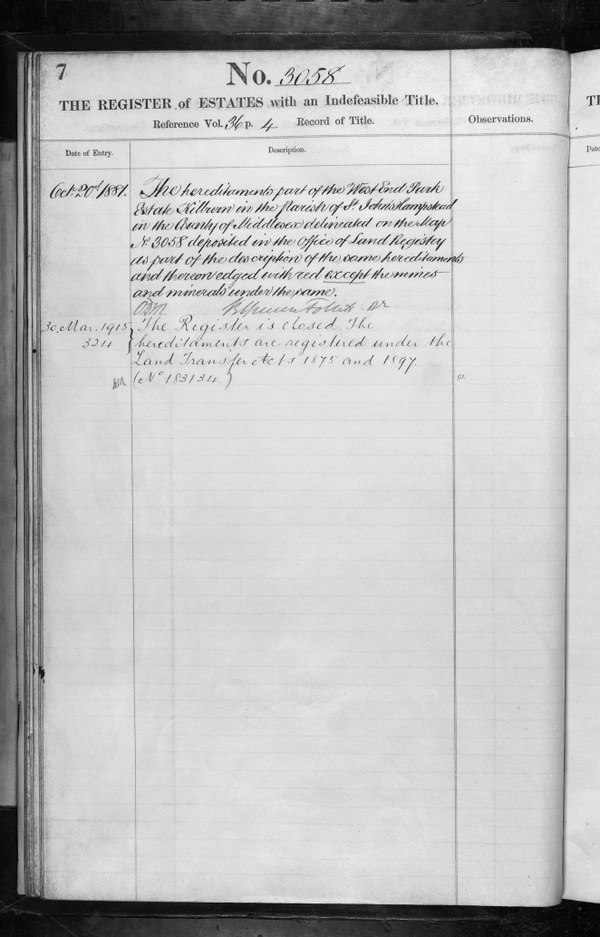 7
No. 3058
THE REGISTER of ESTATES with an Indefeasible Title.
Reference Vol. 36 p. 4 Record of Title.
Observations.
Date of Entry.
Description.
Oct. 20th 1881.
The hereditaments part of the West End Park
Estate Kilburn in the Parish of St. Johns Hampstead
in the County of Middlesex delineated on the Map
No 3058 deposited in the Office of Land Registry
as part of the description of the same hereditaments
and thereon edged with red except the mines
and minerals under the same.
Follett
30, Mar. 1915 The Register is closed. The
324 hereditaments are registered under the
Land Transfer Acts 1875 and 1897.
(No 183134.)